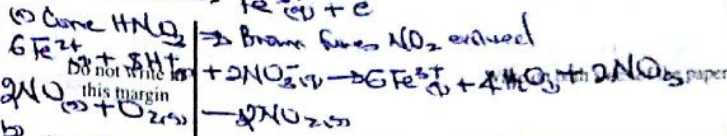 Fe²⁺(aq) + e
(a) Conc HNO₃ ⇒ Brown fumes NO₂ evolved
6Fe²⁺(aq) + 8H⁺(aq) + 2NO₃⁻(aq) → 6Fe³⁺(aq) + 4H₂O(l) + 2NO(g) paper
Do not write
this margin
2NO(g) + O₂(g) → 2NO₂(g)
b)